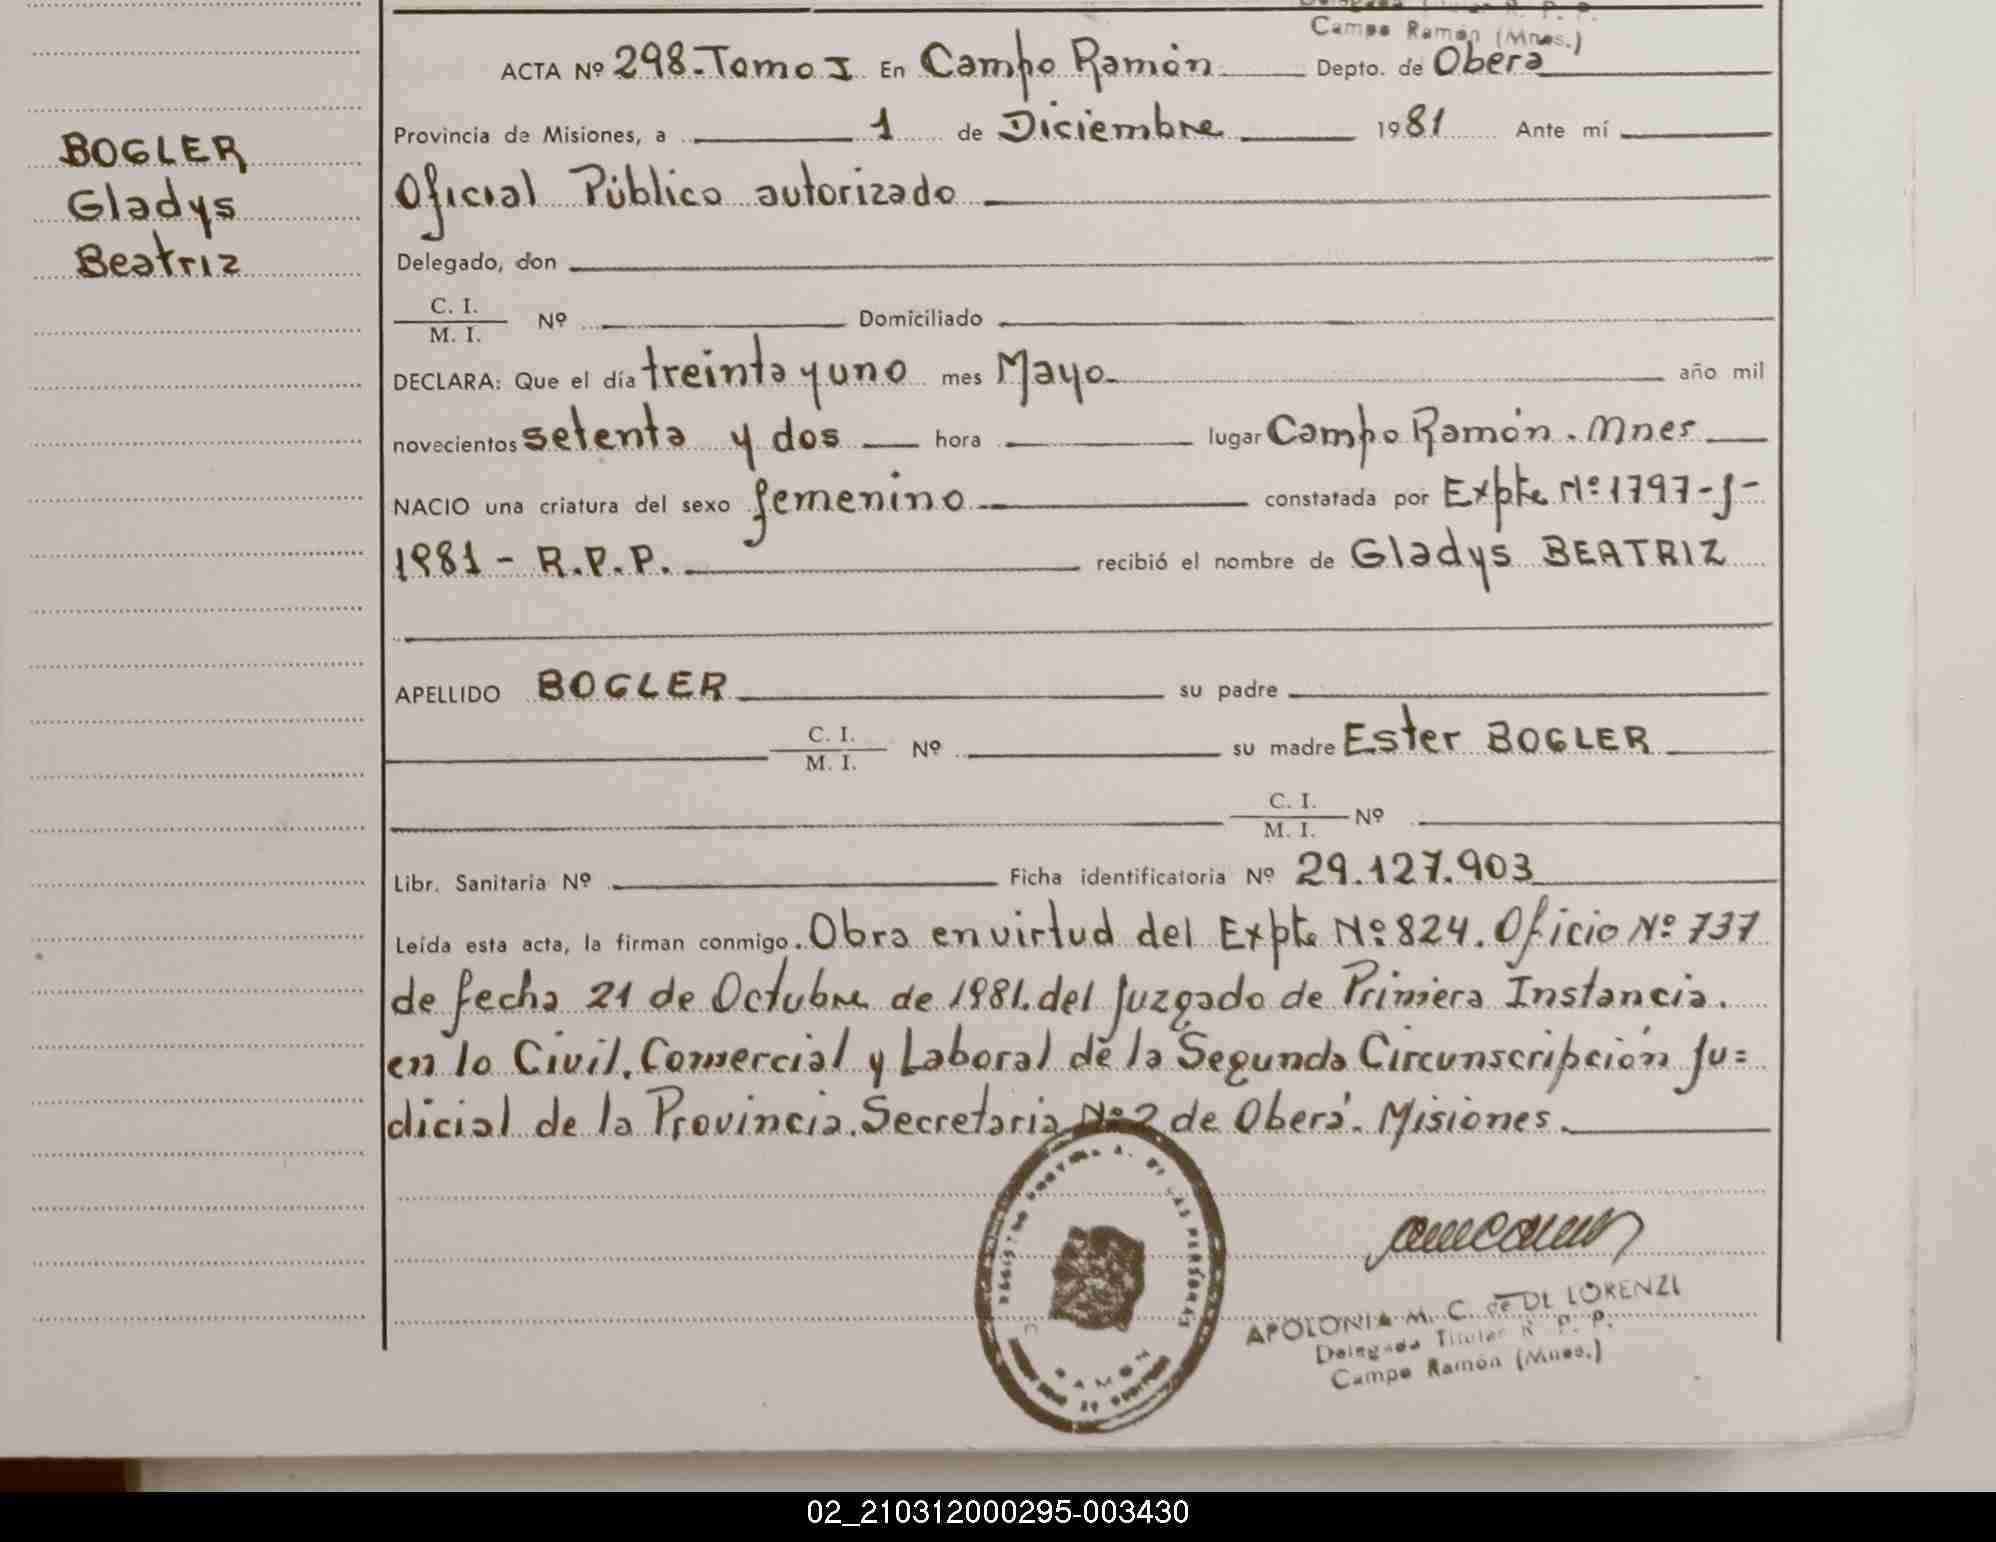 Campo Ramón (Mnes.)
ACTA Nº 298-Tomo I En Campo Ramón Depto. de Oberá
Provincia de Misiones, a 1 de Diciembre 1981 Ante mí
Oficial Público autorizado
Delegado, don
C. I.
M. I. Nº Domiciliado
DECLARA: Que el día treinta y uno mes Mayo año mil
novecientos setenta y dos hora lugar Campo Ramón. Mnes
NACIO una criatura del sexo femenino constatada por Expte Nº 1797-J-
1981 - R.P.P. recibió el nombre de Gladys BEATRIZ
APELLIDO BOGLER su padre
C. I.
M. I. Nº su madre Ester BOGLER
C. I.
M. I. Nº
Libr. Sanitaria Nº Ficha identificatoria Nº 29.127.903
Leída esta acta, la firman conmigo. Obra en virtud del Expte Nº 824. Oficio Nº 737
de fecha 21 de Octubre de 1981. del Juzgado de Primera Instancia.
en lo Civil. Comercial y Laboral de la Segunda Circunscripción Ju=
dicial de la Provincia. Secretaria Nº 2 de Oberá. Misiones.
BOGLER
Gladys
Beatriz
RAMON
APOLONIA M. C. de DI LORENZI
Delegada Titular R. P. P.
Campo Ramón (Mnes.)
02_210312000295-003430